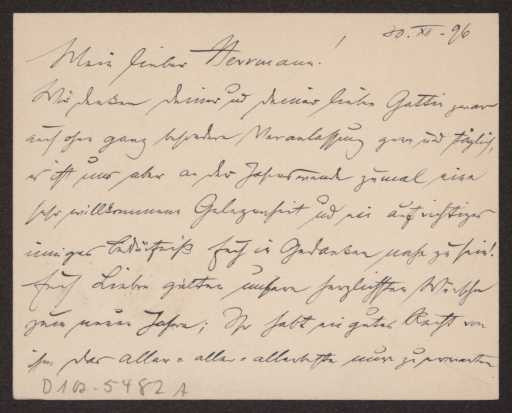 30. XII. 96
Mein lieber Herrmann!
Wir denken Deiner und Deiner lieben Gattin zwar
auch ohne ganz besondere Veranlassung gern und täglich,
es ist uns aber an der Jahreswende zumal eine
sehr willkommene Gelegenheit und ein aufrichtiges
inniges Bedürfniß Euch in Gedanken nahe zu sein!
Euch Lieben gelten unsere herzlichsten Wünsche
zum neuen Jahre; Ihr habt ein gutes Recht von
ihm das aller-aller-allerbeste nur zu erwarten
D 102-5482 A